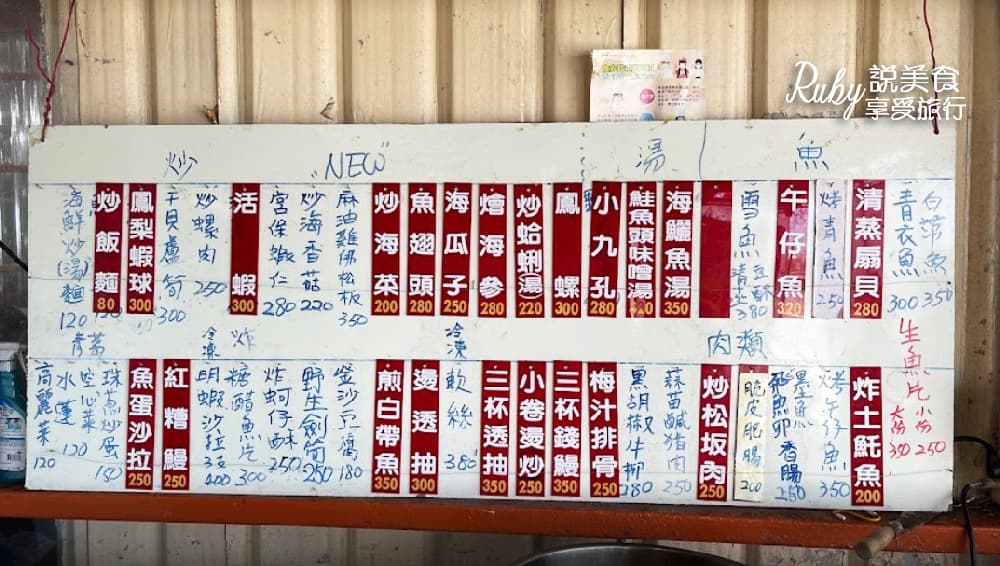 Ruby 說美食
享受旅行
魚
湯
"NEW"
炒
白帶魚 350
青衣魚 300
清蒸扇貝 280
烤青魚 250
午仔魚 320
雪魚 清蒸 豆酥 380
海鱺魚湯 350
鮭魚頭味噌湯
小九孔 280
鳳螺 300
炒蛤蜊(湯) 220
燴海參 280
海瓜子 250
魚翅頭 280
炒海菜 200
麻油雞佛松板 350
炒海香菇 220
宮保蝦仁 280
活蝦 300
炒螺肉 250
干貝蘆筍 300
鳳梨蝦球 300
炒飯麵 80
海鮮炒(湯)麵 120
生魚片
小份 250
大份 350
肉類
冷凍
炸
冷凍
青菜
炸土魠魚 200
烤午仔魚 350
墨魚香腸 250
脆皮肥腸 200
炒松坂肉 250
蒜苗鹹豬肉 250
黑胡椒牛柳 280
梅汁排骨 250
三杯錢鰻 350
小卷燙炒 250
三杯透抽 350
軟絲 380
燙透抽 300
煎白帶魚 350
金沙豆腐 180
野生劍筍 250
炸蚵仔酥 250
糖醋魚片 300
明蝦沙拉
紅糟鰻 250
魚蛋沙拉 250
珠蔥炒蛋 150
空心菜
水蓮 120
高麗菜 120